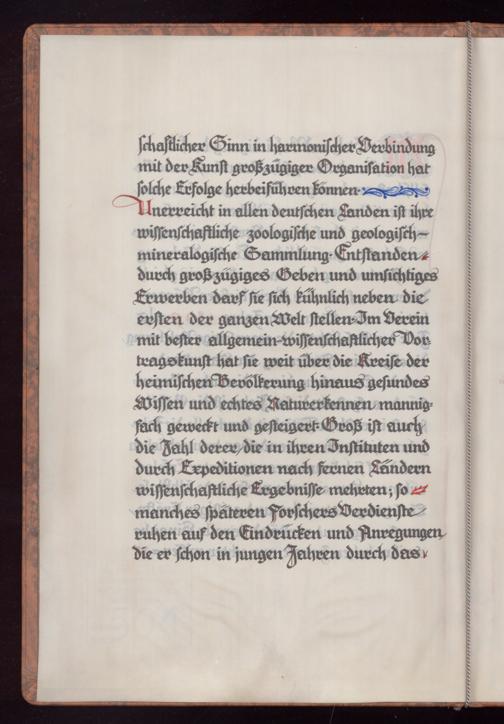 schaftlicher Sinn in harmonischer Verbindung
mit der Kunst großzügiger Organisation hat
solche Erfolge herbeiführen können.
Unerreicht in allen deutschen Landen ist ihre
wissenschaftliche zoologische und geologisch-
mineralogische Sammlung. Entstanden
durch großzügiges Geben und umsichtiges
Erwerben darf sie sich kühnlich neben die
ersten der ganzen Welt stellen. Im Verein
mit bester allgemein-wissenschaftlicher Vor
tragskunst hat sie weit über die Kreise der
heimischen Bevölkerung hinaus gesundes
Wissen und echtes Naturerkennen mannig-
fach geweckt und gesteigert. Groß ist auch
die Zahl derer, die in ihren Instituten und
durch Expeditionen nach fernen Ländern
wissenschaftliche Ergebnisse mehrten; so
manches späteren Forschers Verdienste
ruhen auf den Eindrücken und Anregungen,
die er schon in jungen Jahren durch das